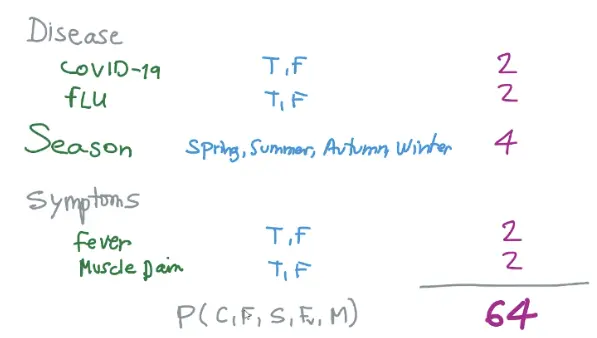 Disease
COVID-19 T,F 2
fLU T,F 2
Season Spring, Summer, Autumn, Winter 4
Symptoms
fever T,F 2
Muscle Pain T,F 2
P(C,F,S,Fv,M) 64